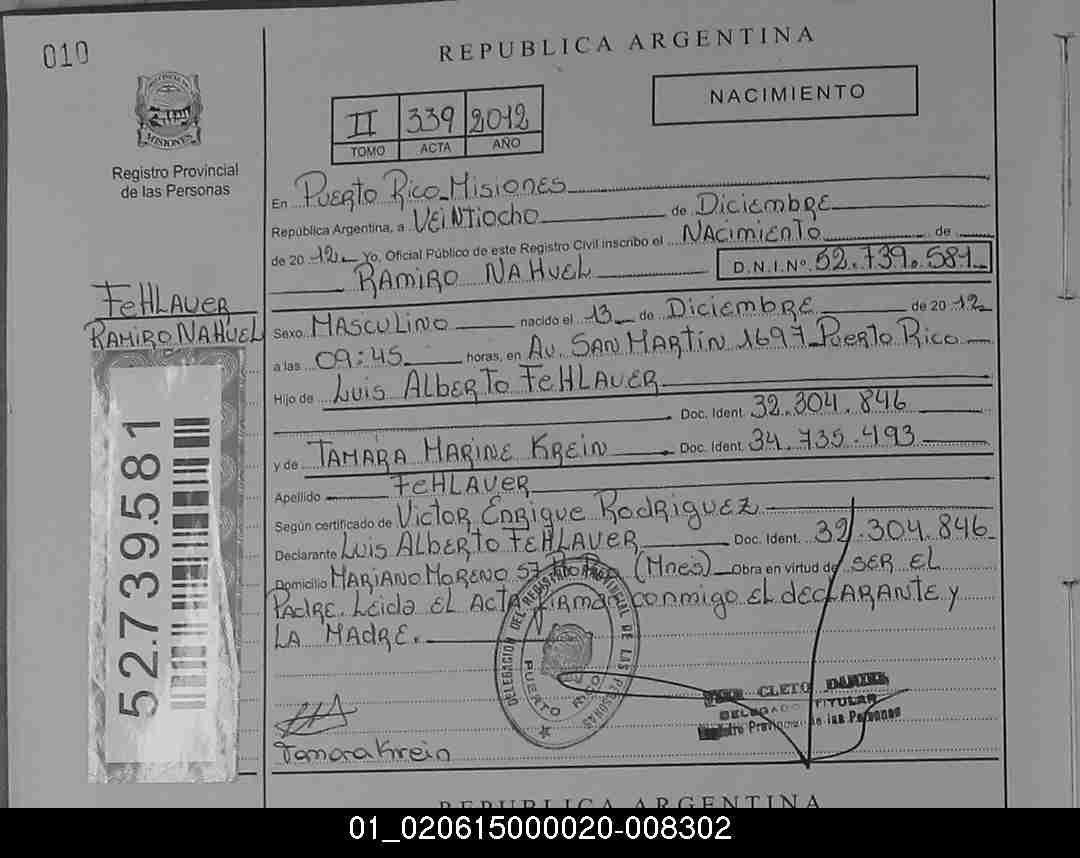 010
REPUBLICA ARGENTINA
NACIMIENTO
II 339 2012
TOMO ACTA AÑO
PROVINCIA DE
MISIONES
Registro Provincial
de las Personas
En Puerto Rico Misiones
República Argentina, a Veintiocho de Diciembre
de 2012 Yo, Oficial Público de este Registro Civil inscribo el Nacimiento de
Ramiro Nahuel D.N.I.Nº 52.739.581
Fehlauer
Ramiro Nahuel
Sexo Masculino nacido el 13 de Diciembre de 2012
a las 09:45 horas, en Av. San Martín 1697 Puerto Rico
Hijo de Luis Alberto Fehlauer
Doc. Ident. 32.304.846
y de Tamara Marine Krein Doc. Ident. 34.735.493
Apellido Fehlauer
Según certificado de Victor Enrique Rodriguez
Declarante Luis Alberto Fehlauer Doc. Ident. 32.304.846
Domicilio Mariano Moreno 57 (Mnes) Obra en virtud de ser el
Padre. Leida el Acta firman conmigo el declarante y
la Madre.
52.739.581
DELEGACION DEL REGISTRO PROVINCIAL DE LAS PERSONAS
PUERTO RICO
CLETO DANIEL
DELEGADO TITULAR
Registro Provincial de las Personas
Tamara Krein
REPUBLICA ARGENTINA
01_020615000020-008302